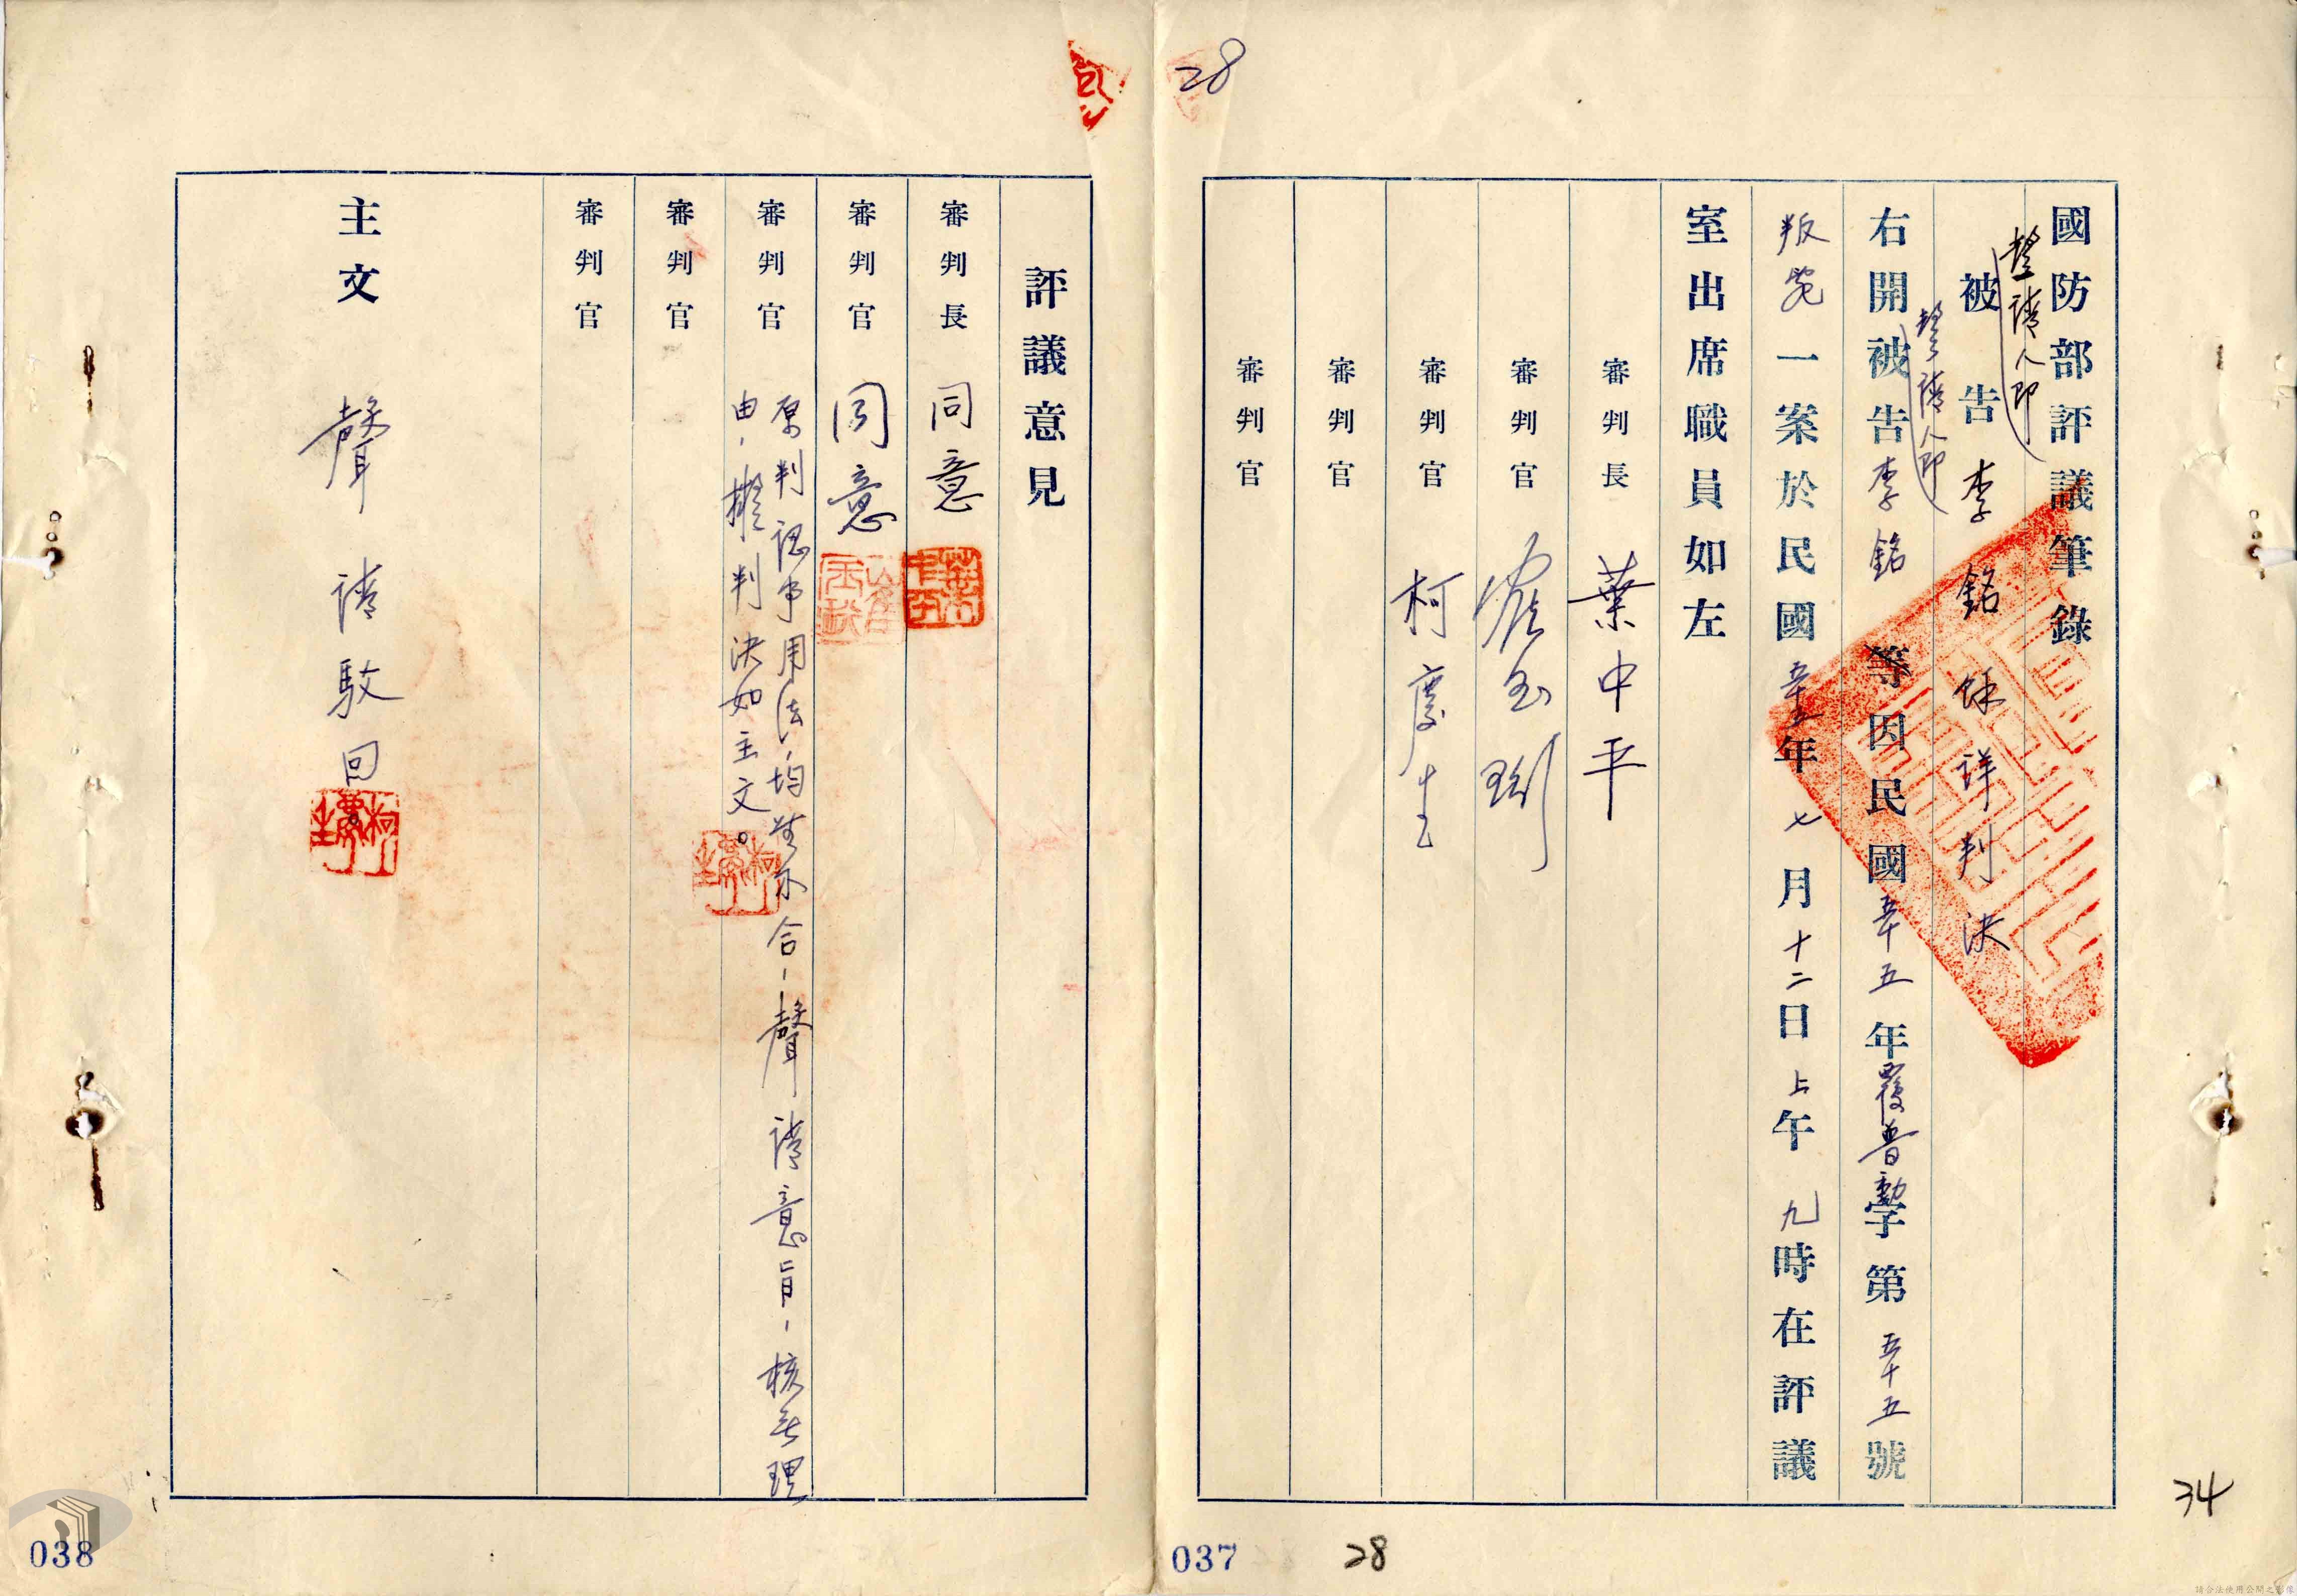 28
國防部評議筆錄
聲請人即
被告李銘 餘詳判決
聲請人即
右開被告李銘等因民國五十五年覆普勳字第五十五號
叛亂一案於民國五十五年七月十二日上午九時在評議
室出席職員如左
審判長 葉中平
審判官 崔玉
審判官 柯慶生
審判官
審判官
34
037
28
評議意見
審判長 同意
審判官 同意
審判官 原判認事用法,均無不合,聲請意旨,核無理
由,擬判決如主文。
審判官
審判官
主文 聲請駁回
038
請合法使用公開之影像